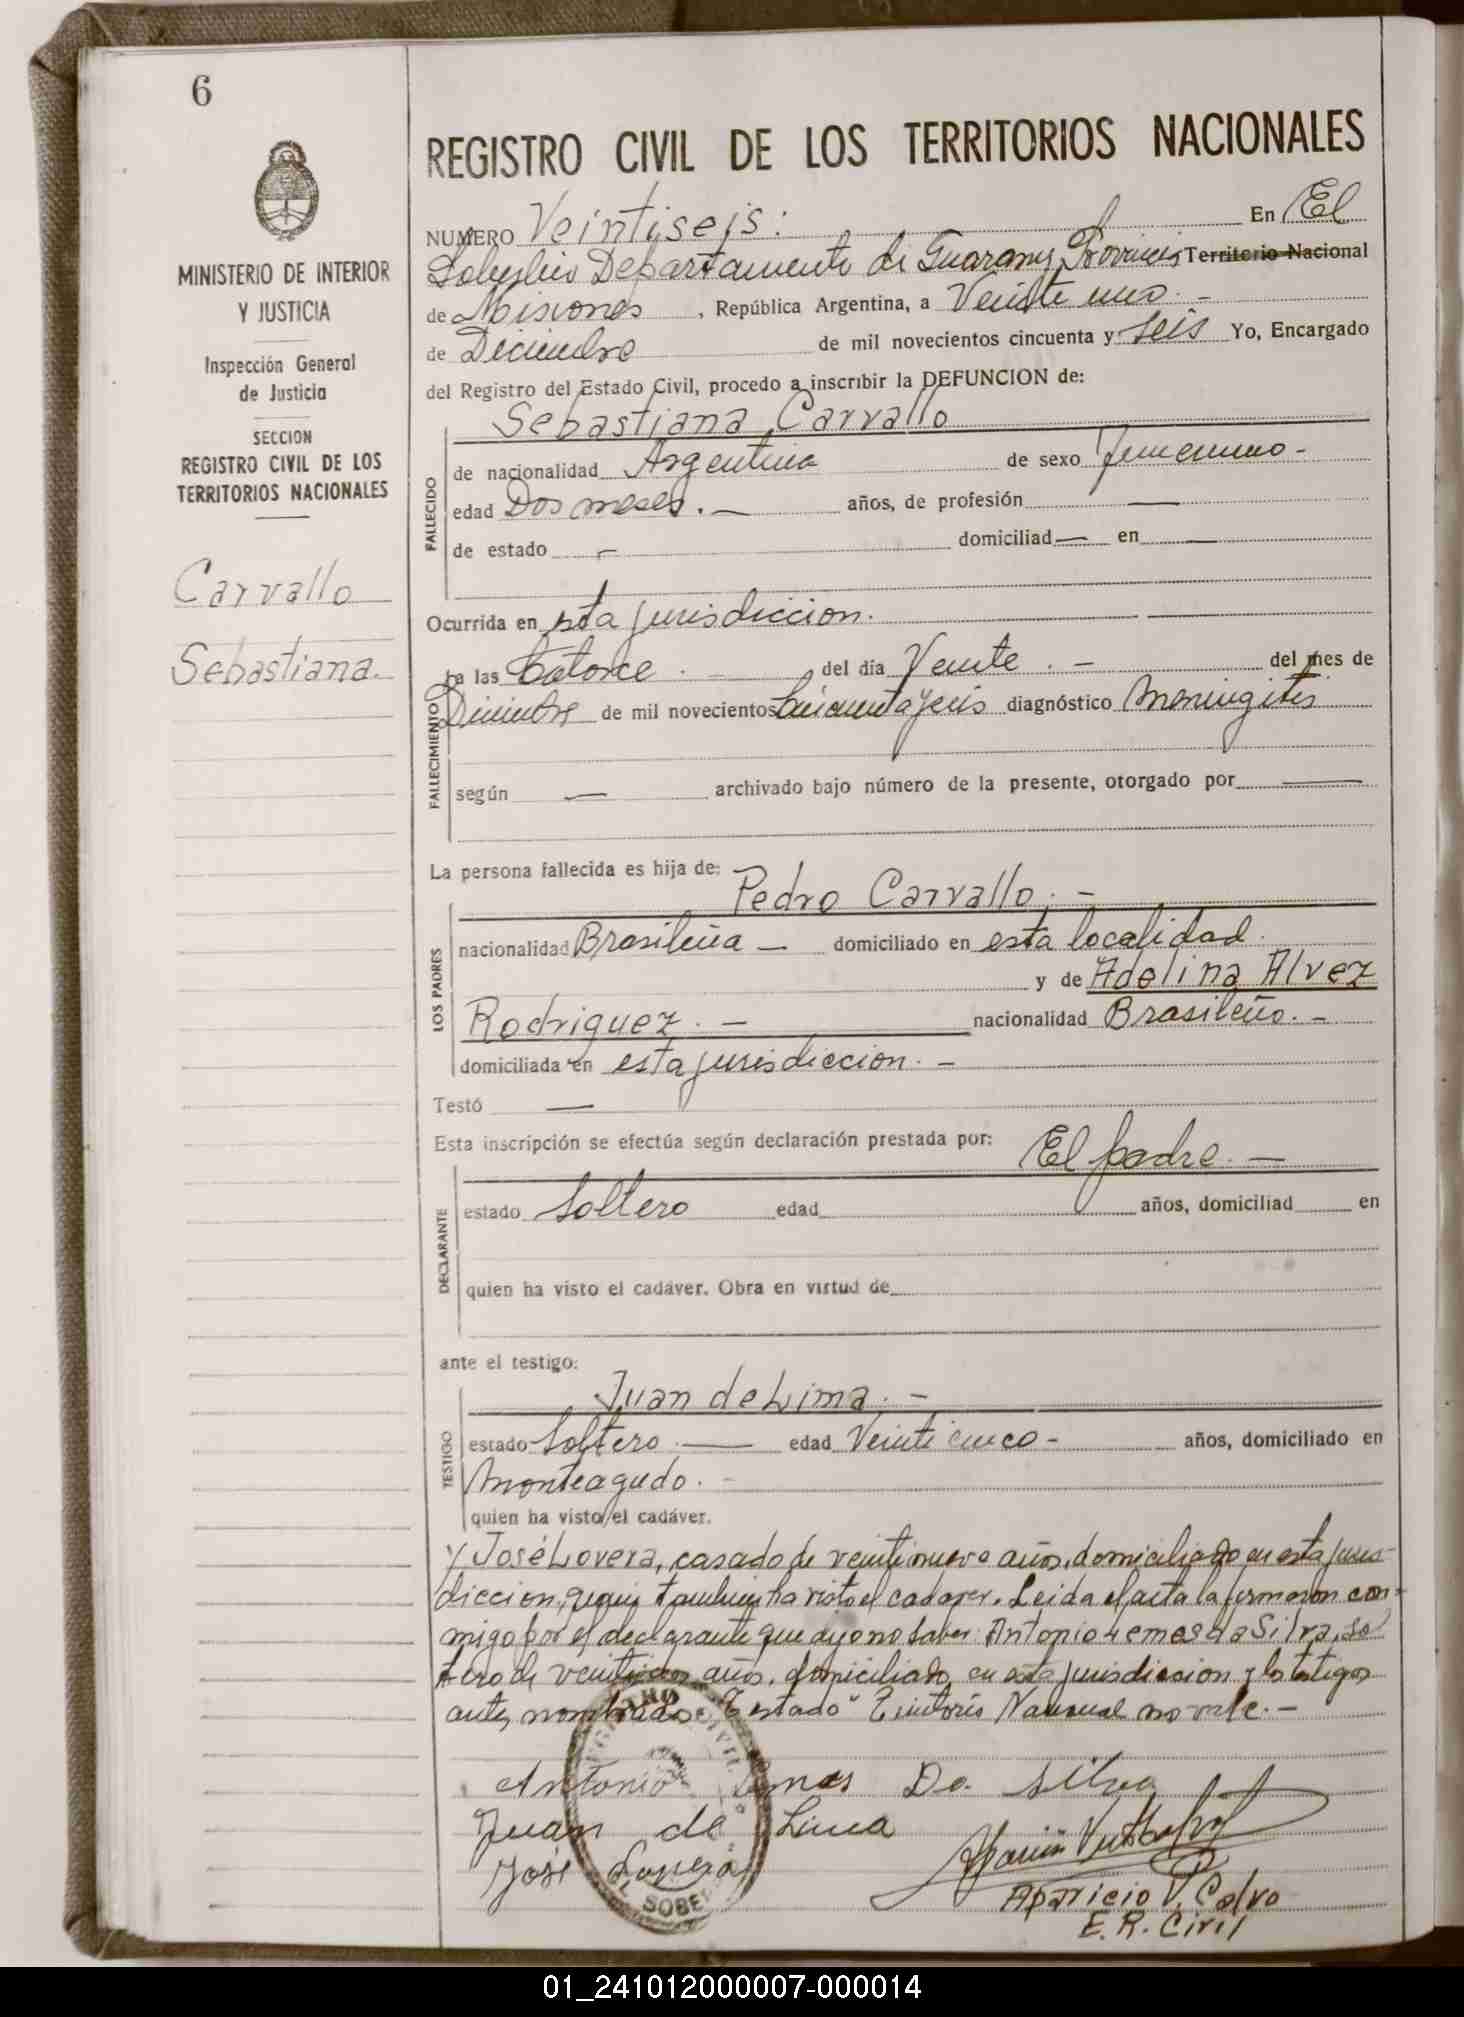 6
MINISTERIO DE INTERIOR
Y JUSTICIA
Inspección General
de Justicia
SECCION
REGISTRO CIVIL DE LOS
TERRITORIOS NACIONALES
Carvallo
Sebastiana.
REGISTRO CIVIL DE LOS TERRITORIOS NACIONALES
NUMERO Veintiseis: En El
Soberbio Departamento de Guarany Provincia Territorio Nacional
de Misiones , República Argentina, a Veinte uno.
de Diciembre de mil novecientos cincuenta y seis Yo, Encargado
del Registro del Estado Civil, procedo a inscribir la DEFUNCION de:
Sebastiana Carvallo
FALLECIDO
de nacionalidad Argentina de sexo femenino -
edad Dos meses. — años, de profesión —
de estado — domiciliad — en —
Ocurrida en esta jurisdiccion.
FALLECIMIENTO
a las Catorce. del día Veinte. - del mes de
Diciembre de mil novecientos cincuenta y seis diagnóstico Meningitis
según — archivado bajo número de la presente, otorgado por —
La persona fallecida es hija de:
Pedro Carvallo. -
LOS PADRES
nacionalidad Brasileña — domiciliado en esta localidad.
y de Adelina Alvez
Rodriguez. — nacionalidad Brasileño. -
domiciliada en esta jurisdiccion. —
Testó —
Esta inscripción se efectúa según declaración prestada por: El padre. —
DECLARANTE
estado Soltero edad años, domiciliad en
quien ha visto el cadáver. Obra en virtud de
ante el testigo:
Juan de Lima. -
TESTIGO
estado Soltero. — edad Veinticinco - años, domiciliado en
Monteagudo. -
quien ha visto el cadáver.
y José Lovera, casado de veintinueve años, domiciliado en esta juris-
diccion, quien tambien ha visto el cadaver. Leida el acta la firmaron con-
migo por el declarante que dijo no saber Antonio Lemes da Silva, sol
tero de veintidos años, domiciliado en esta jurisdiccion y los testigos
antes nombrados. Testado "Territorio Nacional no vale. -
Antonio Lemes Da Silva
Juan de Lima
José Lovera
Aparicio V. Calvo
E. R. Civil
REGISTRO CIVIL
EL SOBERBIO
01_241012000007-000014